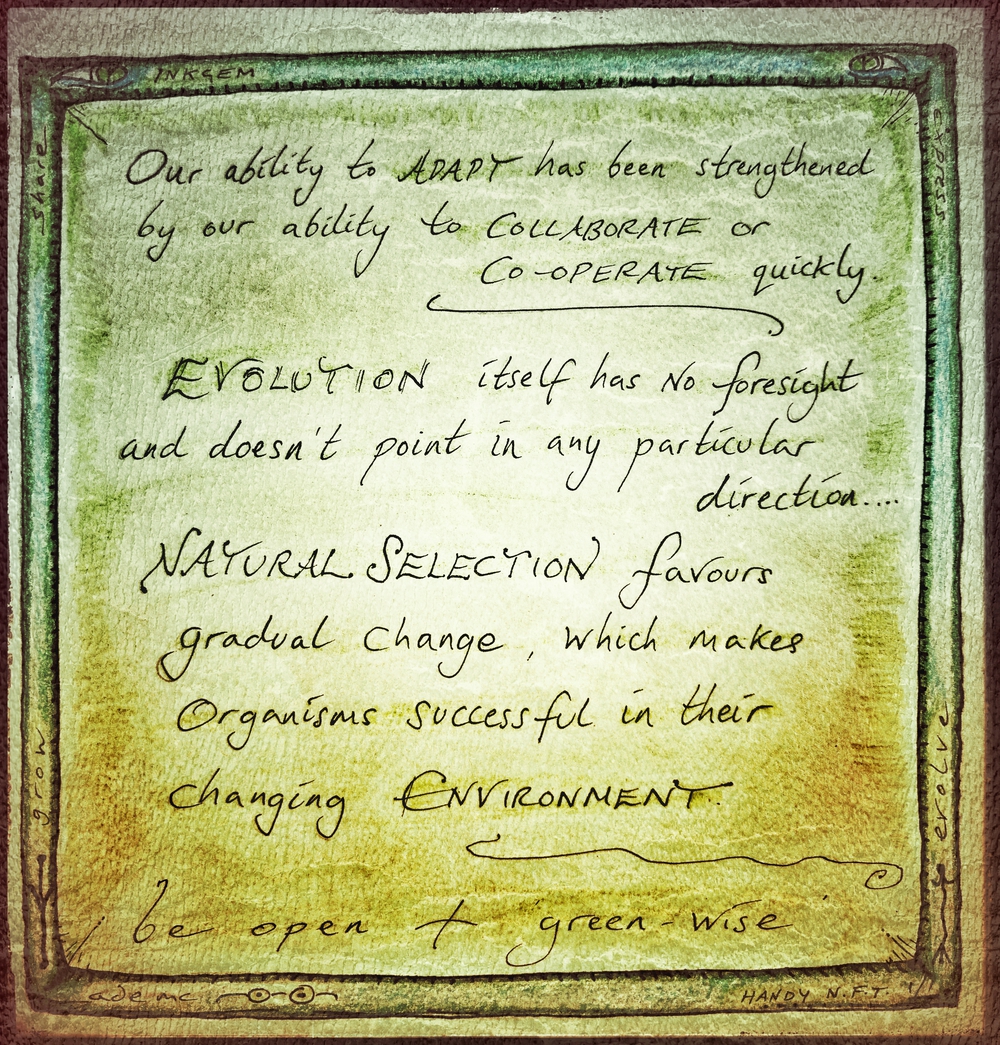 INKGEM
share
express
Our ability to ADAPT has been strengthened
by our ability to COLLABORATE or
CO-OPERATE quickly.
EVOLUTION itself has NO foresight
and doesn't point in any particular
direction....
NATURAL SELECTION favours
gradual change, which makes
Organisms successful in their
changing ENVIRONMENT.
be open + 'green-wise'
grow
evolve
ade mc
HANDY N.F.T.